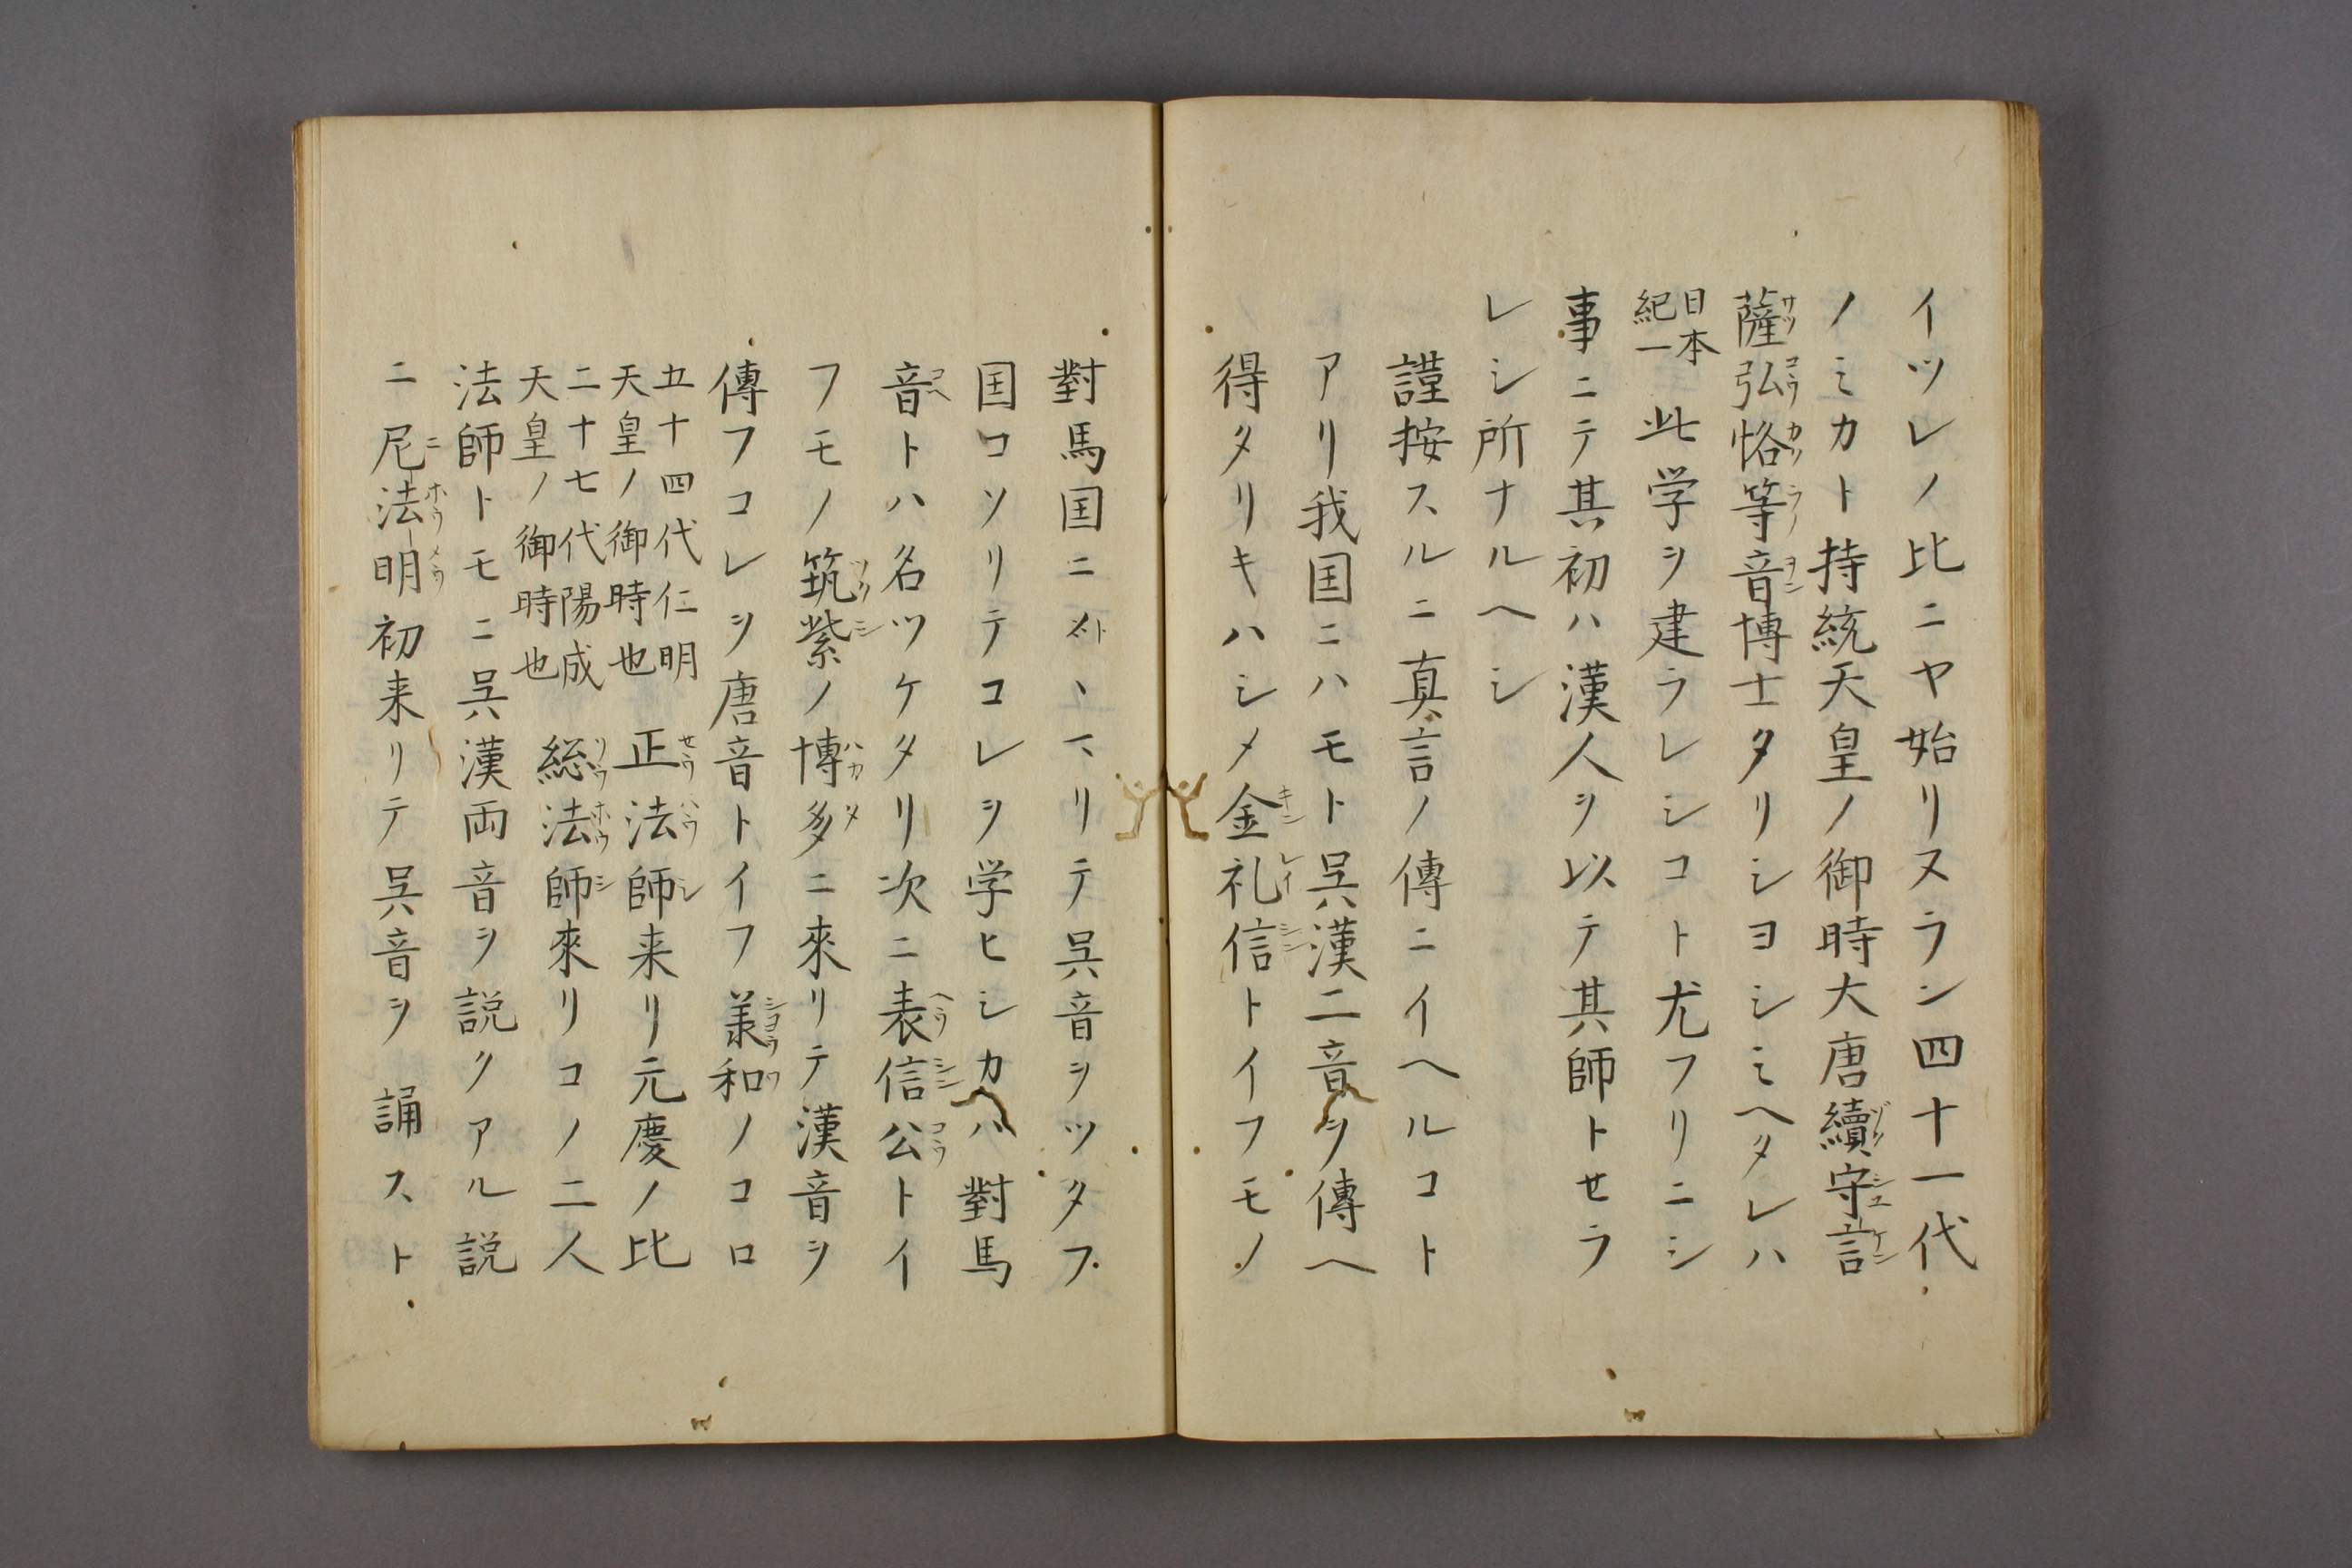 イツレノ比ニヤ始リヌラン四十一代
ノミカト持統天皇ノ御時大唐續守言
薩弘恪等音博士タリシヨシミヘタレハ
日本紀一 此学ヲ建ラレシコト尤フリニシ
事ニテ其初ハ漢人ヲ以テ其師トセラ
レシ所ナルヘシ
謹按スルニ真言ノ傳ニイヘルコト
アリ我国ニハモト呉漢二音ヲ傳ヘ
得タリキハシメ金礼信トイフモノ
對馬国ニ〆トヽマリテ呉音ヲツタフ
国コソリテコレヲ学ヒシカハ對馬
音トハ名ツケタリ次ニ表信公トイ
フモノ筑紫ノ博多ニ來リテ漢音ヲ
傳フコレヲ唐音トイフ義和ノコロ
五十四代仁明天皇ノ御時也 正法師来リ元慶ノ比
二十七代陽成天皇ノ御時也 総法師來リコノ二人
法師トモニ呉漢両音ヲ説クアル説
ニ尼法明初来リテ呉音ヲ誦スト